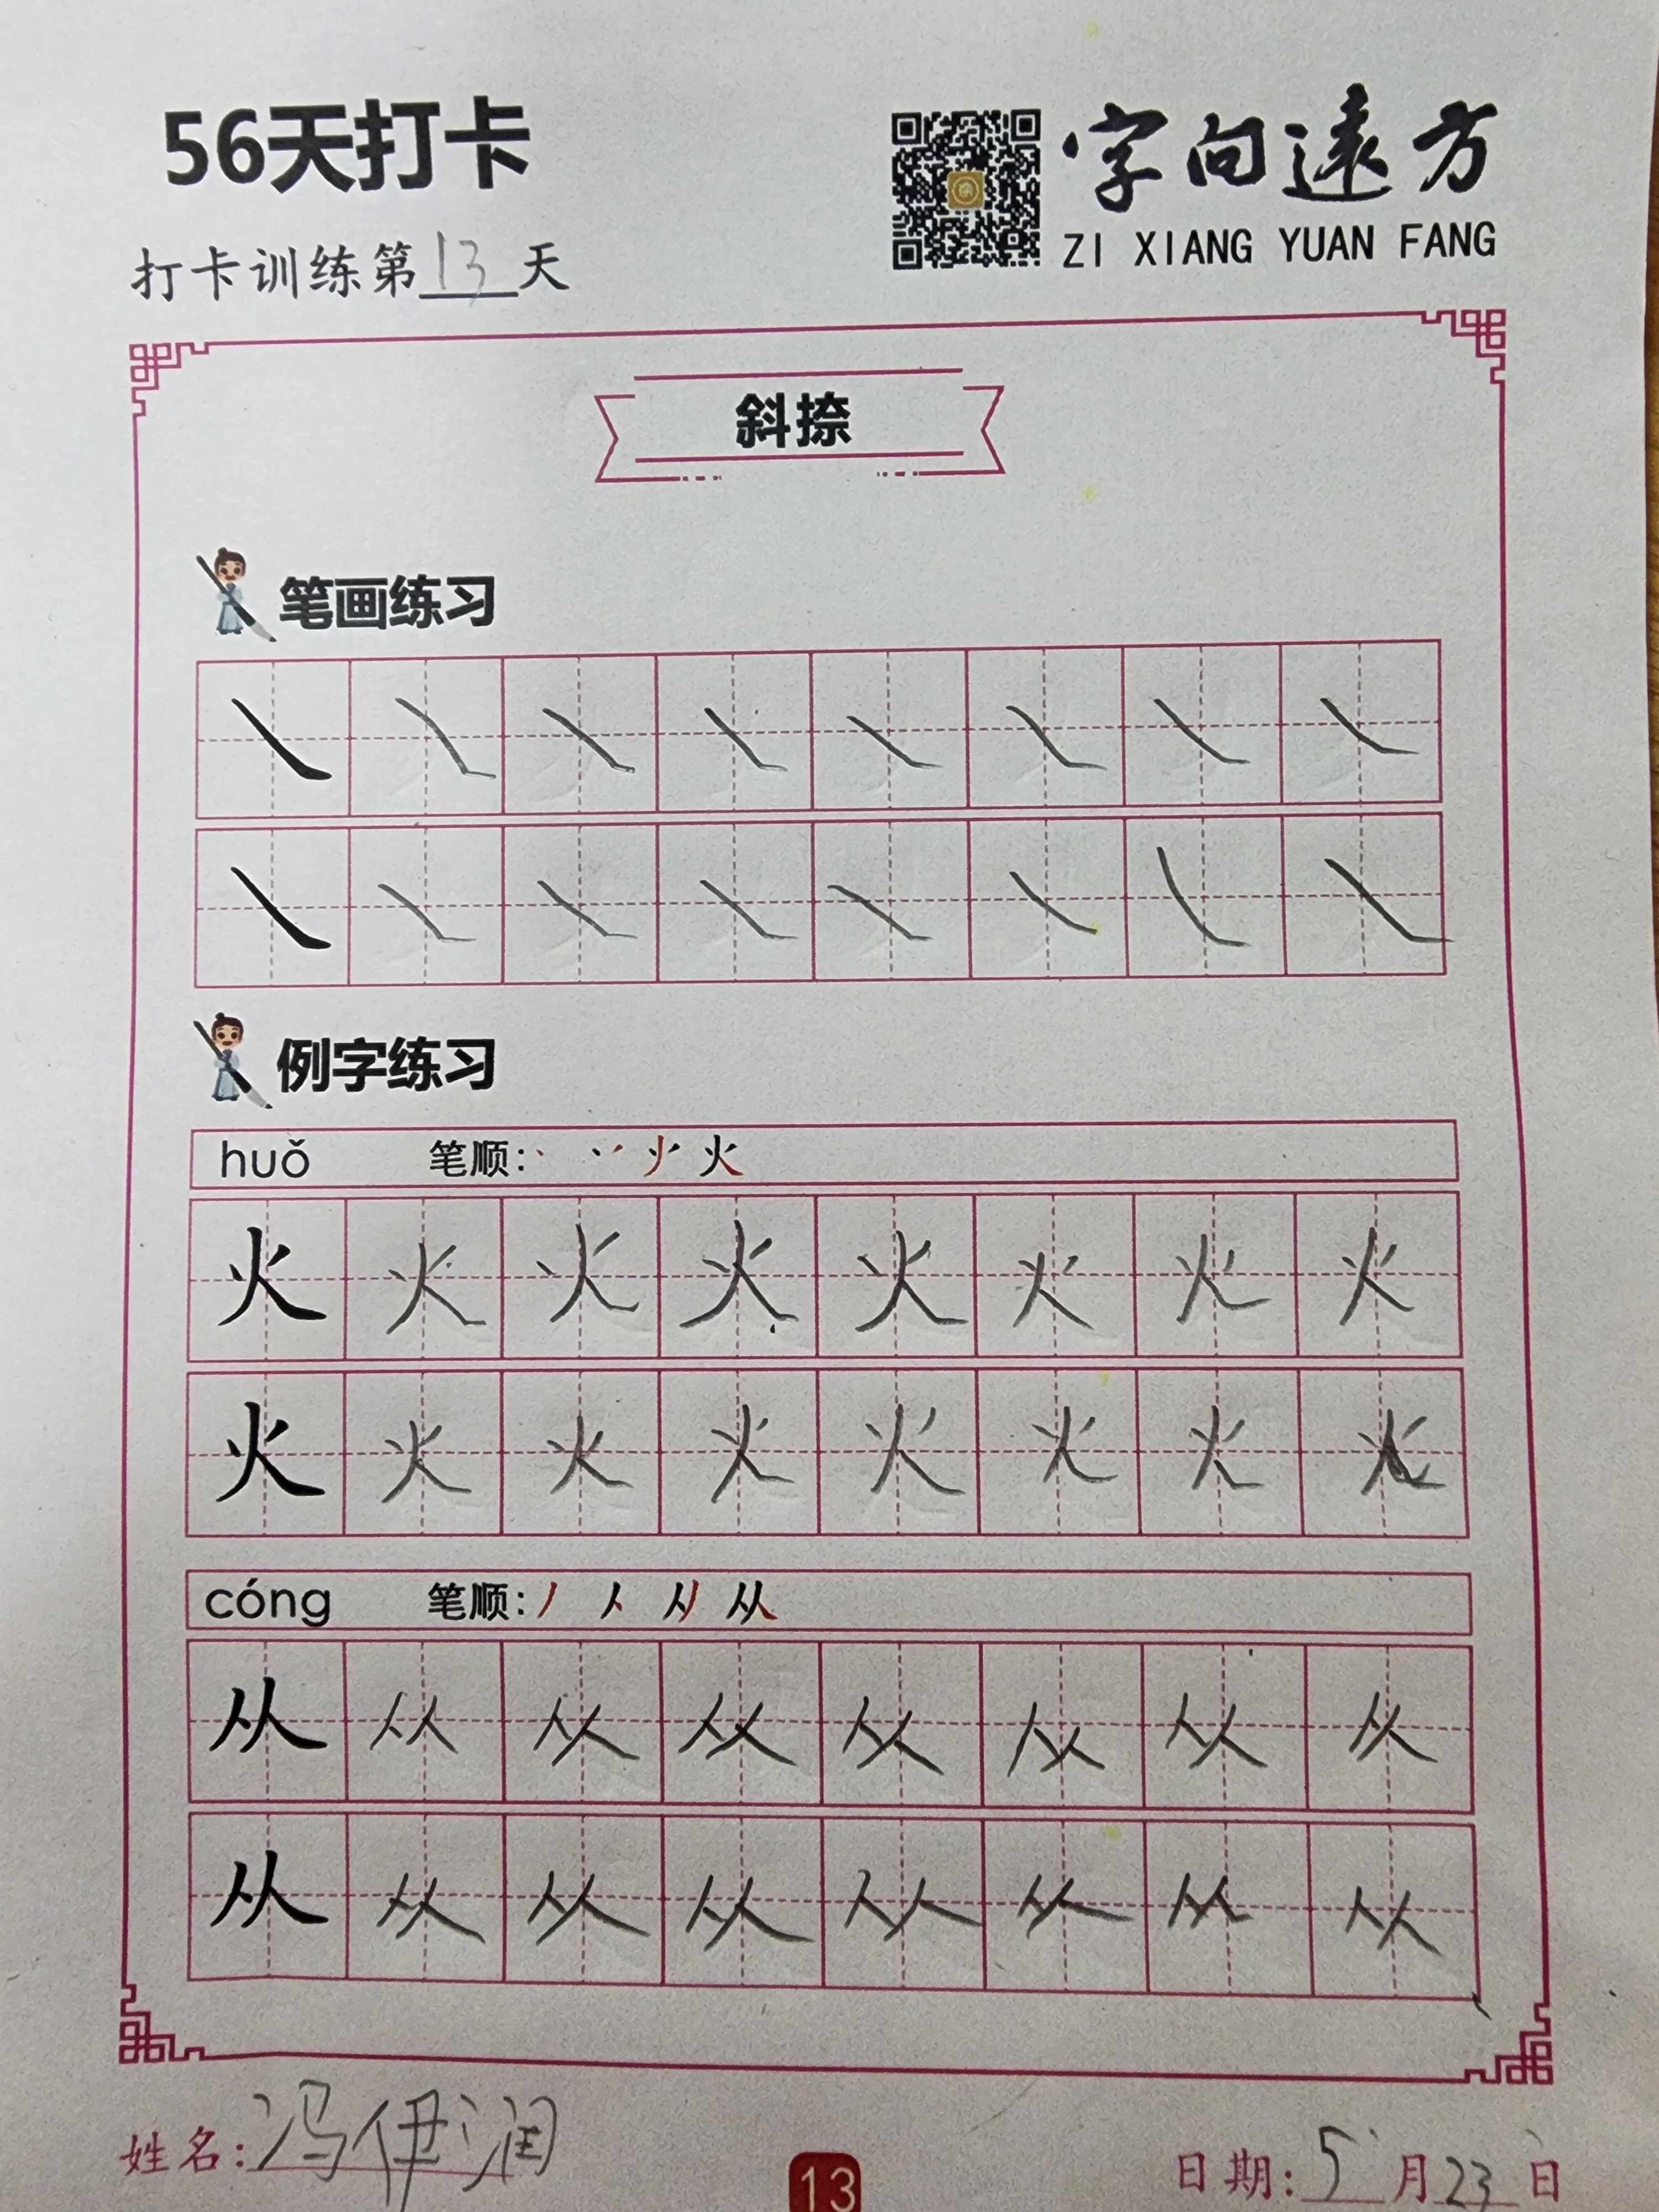 56天打卡
字向遠方
ZI XIANG YUAN FANG
打卡训练第13天
斜捺
笔画练习
㇏ ㇏ ㇏ ㇏ ㇏ ㇏ ㇏ ㇏
㇏ ㇏ ㇏ ㇏ ㇏ ㇏ ㇏ ㇏
例字练习
huǒ 笔顺: 火
火 火 火 火 火 火 火 火
火 火 火 火 火 火 火 火
cóng 笔顺: 丿 人 从
从 从 从 从 从 从 从 从
从 从 从 从 从 从 从 从
姓名: 冯伊润
13
日期: 5月23日